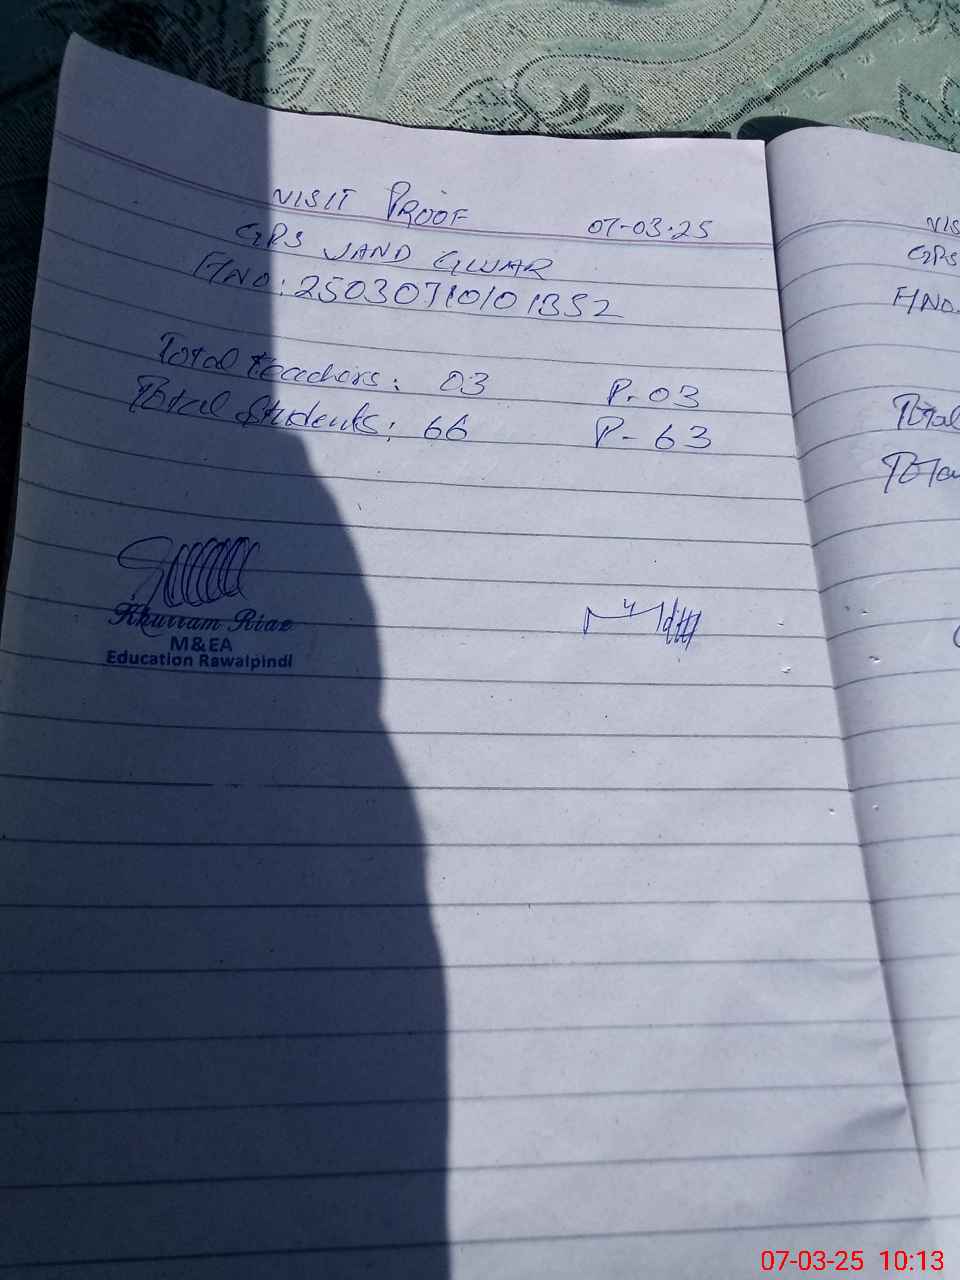 VISIT PROOF 07-03-25
GPS JAND GUJAR
F/NO: 25030710101352
Total teachers: 03 P-03
Total Students: 66 P-63
Khurram Riaz
M&EA
Education Rawalpindi
VIS
GPS
F/NO.
Total
Total
07-03-25 10:13